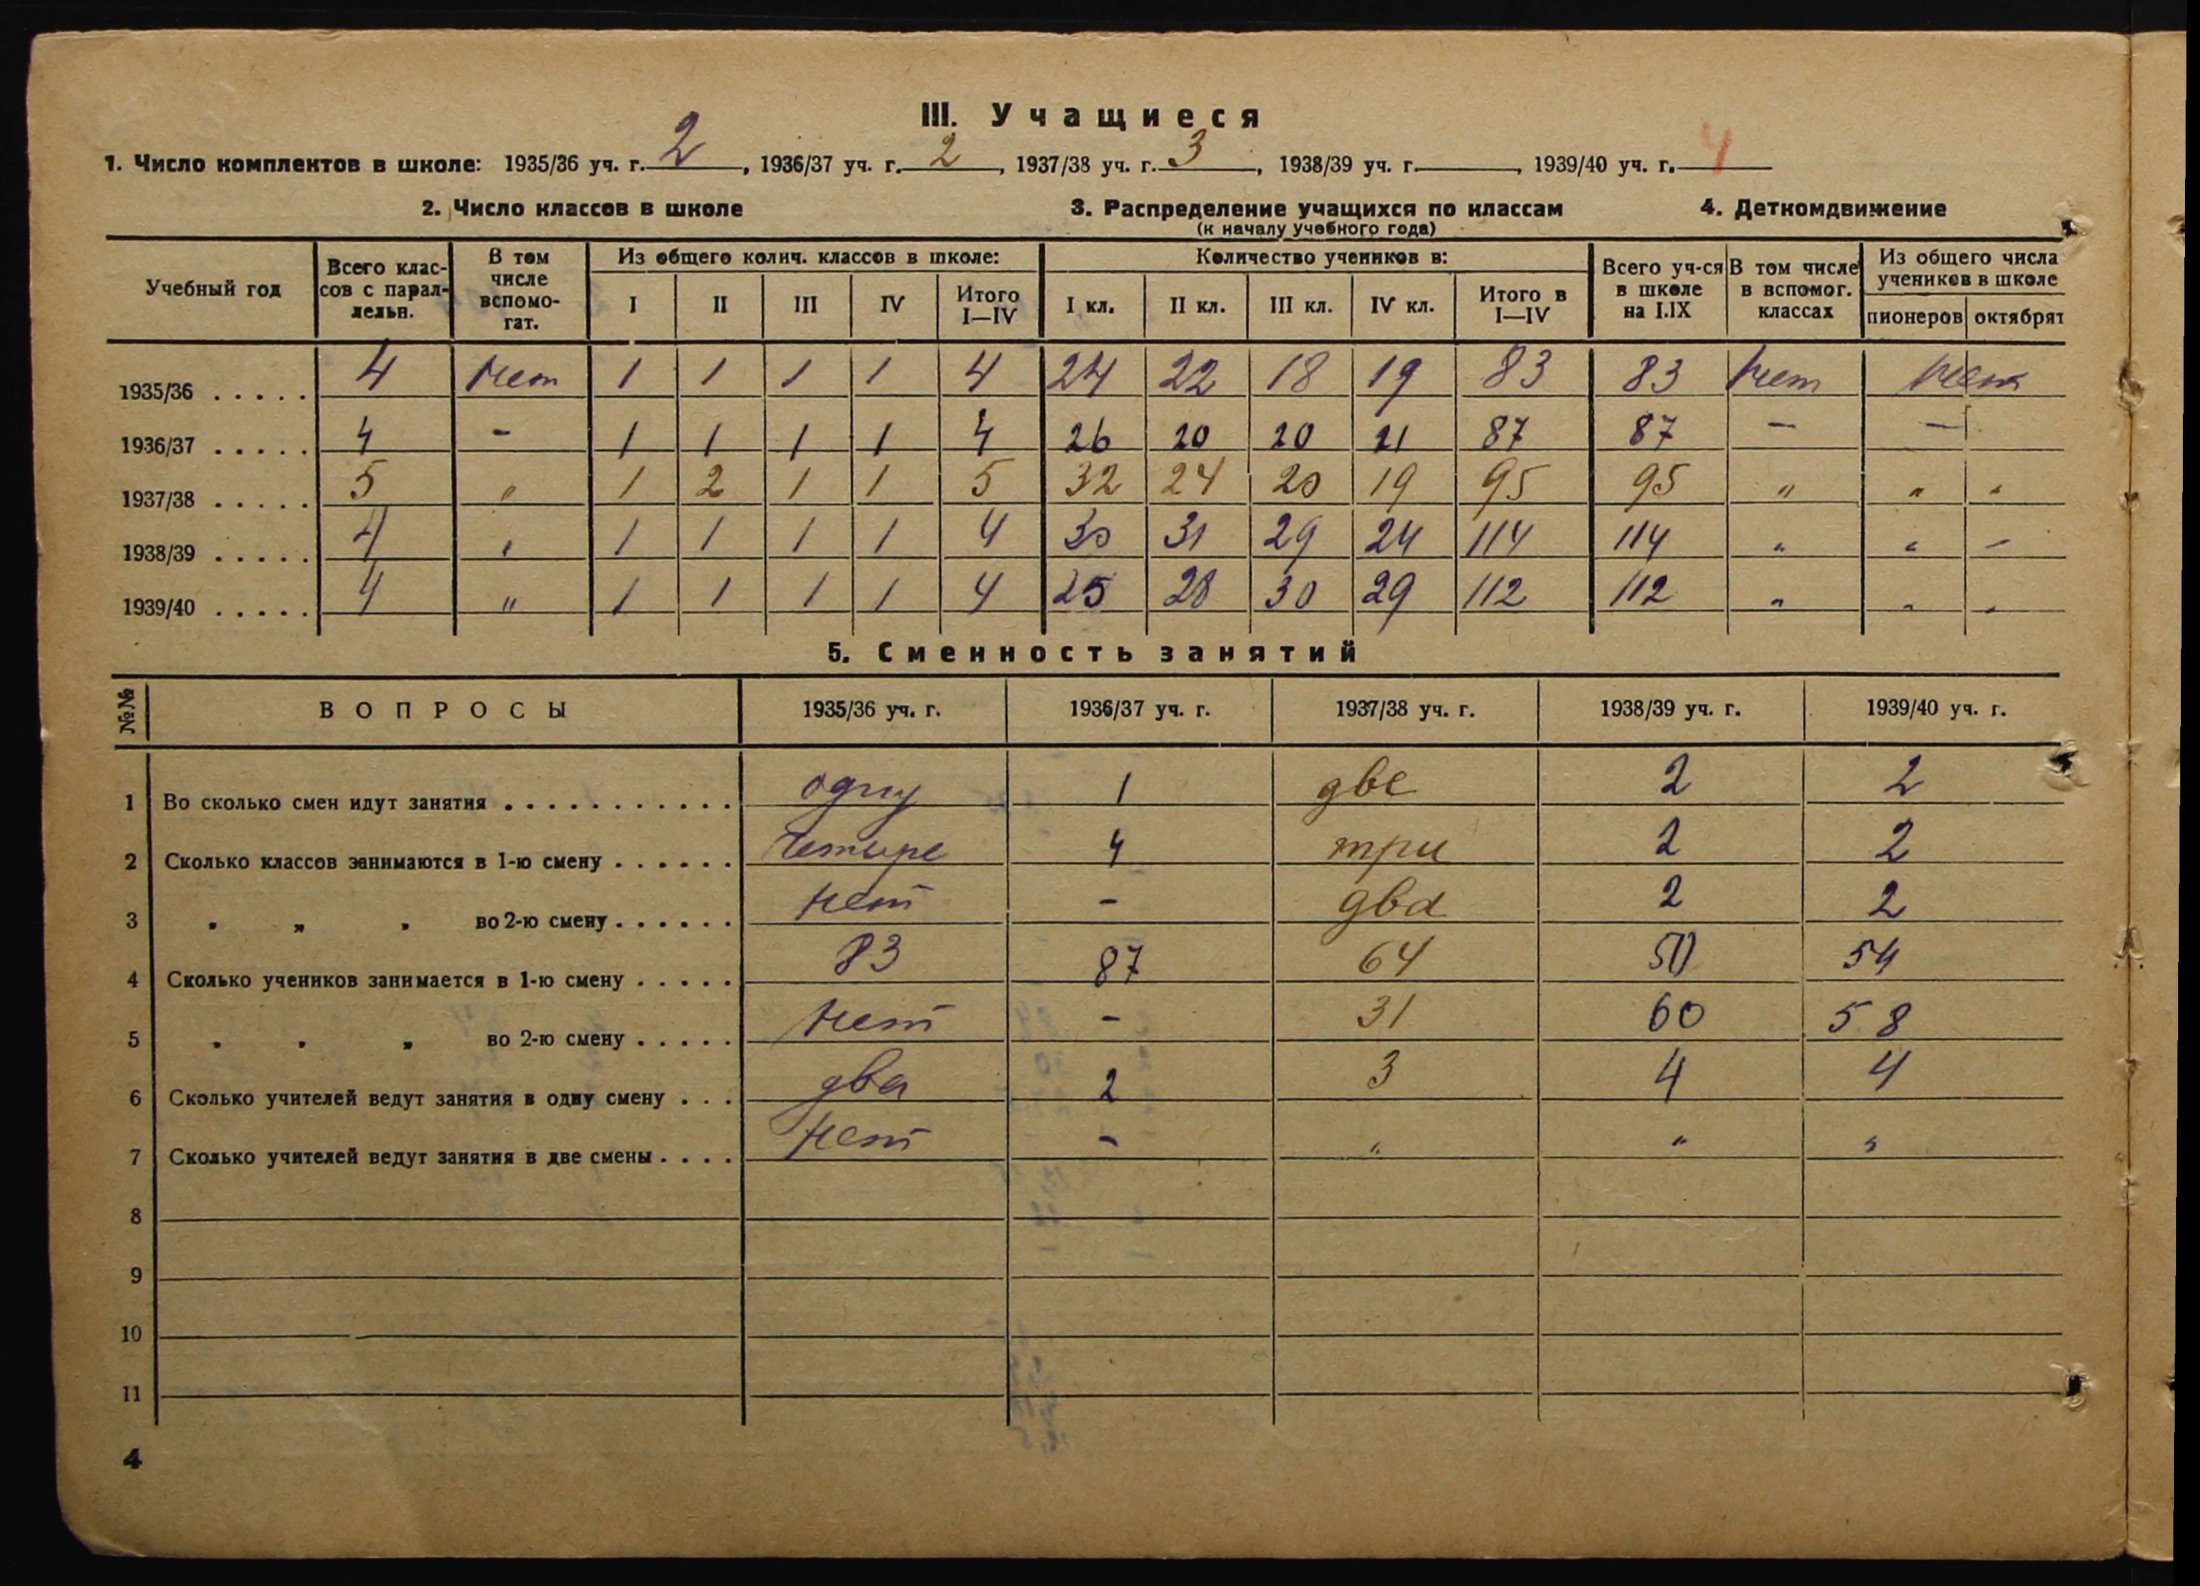 III. Учащиеся
1. Число комплектов в школе: 1935/36 уч. г. 2, 1936/37 уч. г. 2, 1937/38 уч. г. 3, 1938/39 уч. г. , 1939/40 уч. г. 4
2. Число классов в школе 3. Распределение учащихся по классам 4. Деткомдвижение
(к началу учебного года)
Учебный год Всего клас- сов с парал- лельн. В том числе вспомо- гат. Из общего колич. классов в школе: Количество учеников в: Всего уч-ся в школе на 1.IX В том числе в вспомог. классах Из общего числа учеников в школе
I II III IV Итого I—IV I кл. II кл. III кл. IV кл. Итого в I—IV пионеров октябрят
1935/36 . . . . . 4 нет 1 1 1 1 4 24 22 18 19 83 83 нет нет
1936/37 . . . . . 4 - 1 1 1 1 4 26 20 20 21 87 87 — —
1937/38 . . . . . 5 " 1 2 1 1 5 32 24 20 19 95 95 " " "
1938/39 . . . . . 4 " 1 1 1 1 4 30 31 29 24 114 114 " " "
1939/40 . . . . . 4 " 1 1 1 1 4 25 28 30 29 112 112 " " "
5. Сменность занятий
№№ ВОПРОСЫ 1935/36 уч. г. 1936/37 уч. г. 1937/38 уч. г. 1938/39 уч. г. 1939/40 уч. г.
1 Во сколько смен идут занятия . . . . . . . . . . . одну 1 две 2 2
2 Сколько классов занимаются в 1-ю смену . . . . . . четыре 4 три 2 2
3 " " " во 2-ю смену . . . . . . нет - два 2 2
4 Сколько учеников занимается в 1-ю смену . . . . . 83 87 64 50 54
5 " " " во 2-ю смену . . . . . нет - 31 60 58
6 Сколько учителей ведут занятия в одну смену . . . два 2 3 4 4
7 Сколько учителей ведут занятия в две смены . . . . нет - " " "
8
9
10
11
4